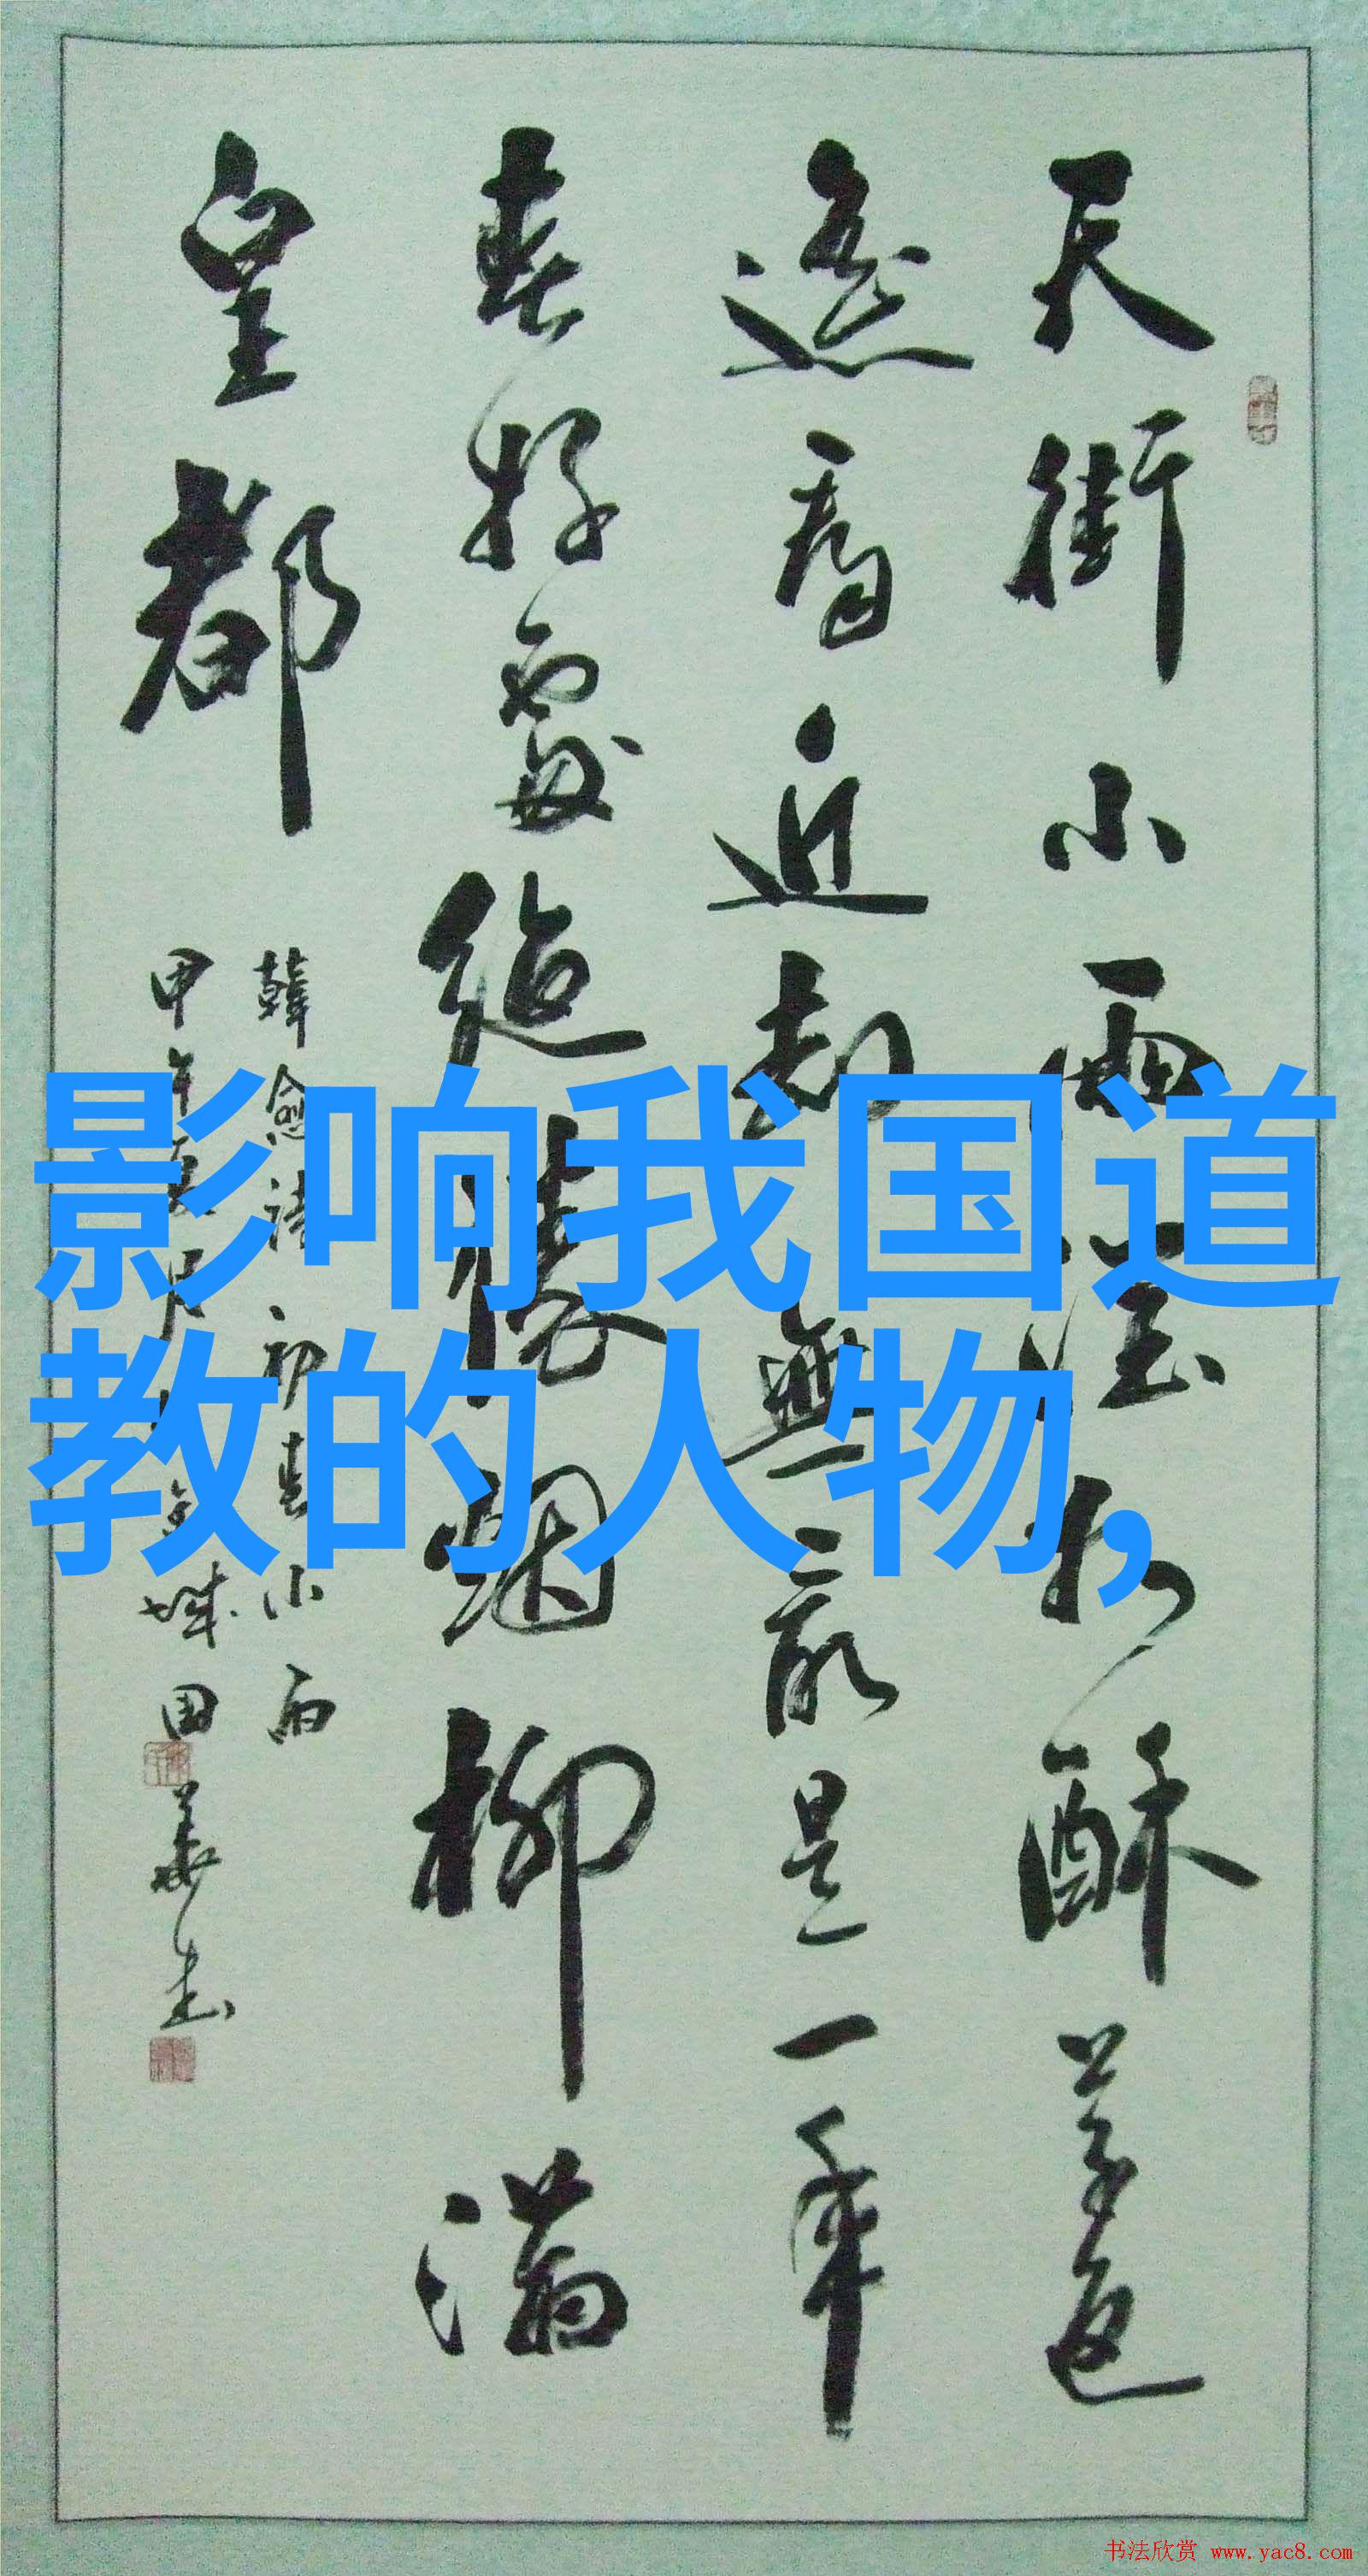 天街小雨润如酥草色
遥看近却无最是一年
春好处绝胜烟柳满
皇都
韓愈诗初春小雨
甲午夏月 城国华书
影响我国道
教的人物,
书法欣赏 www.yac8.com